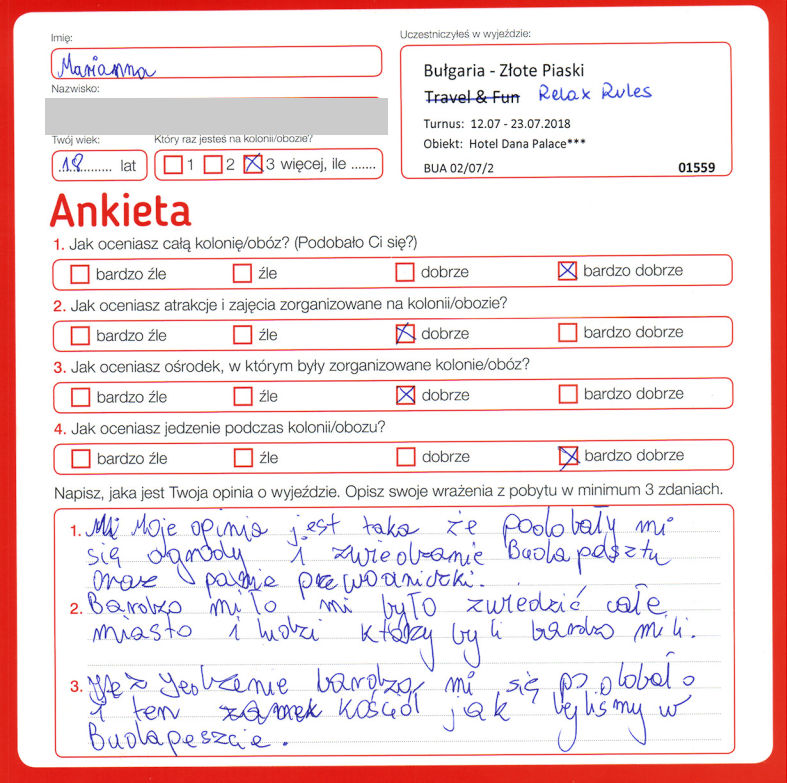 Imię:
Marianna
Nazwisko:
Twój wiek:
18 lat
Który raz jesteś na kolonii/obozie?
1 2 3 więcej, ile .......
Uczestniczyłeś w wyjeździe:
Bułgaria - Złote Piaski
Travel & Fun Relax Rules
Turnus: 12.07 - 23.07.2018
Obiekt: Hotel Dana Palace***
BUA 02/07/2 01559
Ankieta
1. Jak oceniasz całą kolonię/obóz? (Podobało Ci się?)
bardzo źle źle dobrze bardzo dobrze
2. Jak oceniasz atrakcje i zajęcia zorganizowane na kolonii/obozie?
bardzo źle źle dobrze bardzo dobrze
3. Jak oceniasz ośrodek, w którym były zorganizowane kolonie/obóz?
bardzo źle źle dobrze bardzo dobrze
4. Jak oceniasz jedzenie podczas kolonii/obozu?
bardzo źle źle dobrze bardzo dobrze
Napisz, jaka jest Twoja opinia o wyjeździe. Opisz swoje wrażenia z pobytu w minimum 3 zdaniach.
1. Moje opinia jest taka że podobały mi
się ogrody i zwiedzanie Budapesztu
oraz panie przewodniczki.
2. Bardzo miło mi było zwiedzić całe
miasto i ludzi którzy byli bardzo mili.
3. Jedzenie bardzo mi się podobało
i ten kościół jak byliśmy w
Budapeszcie.